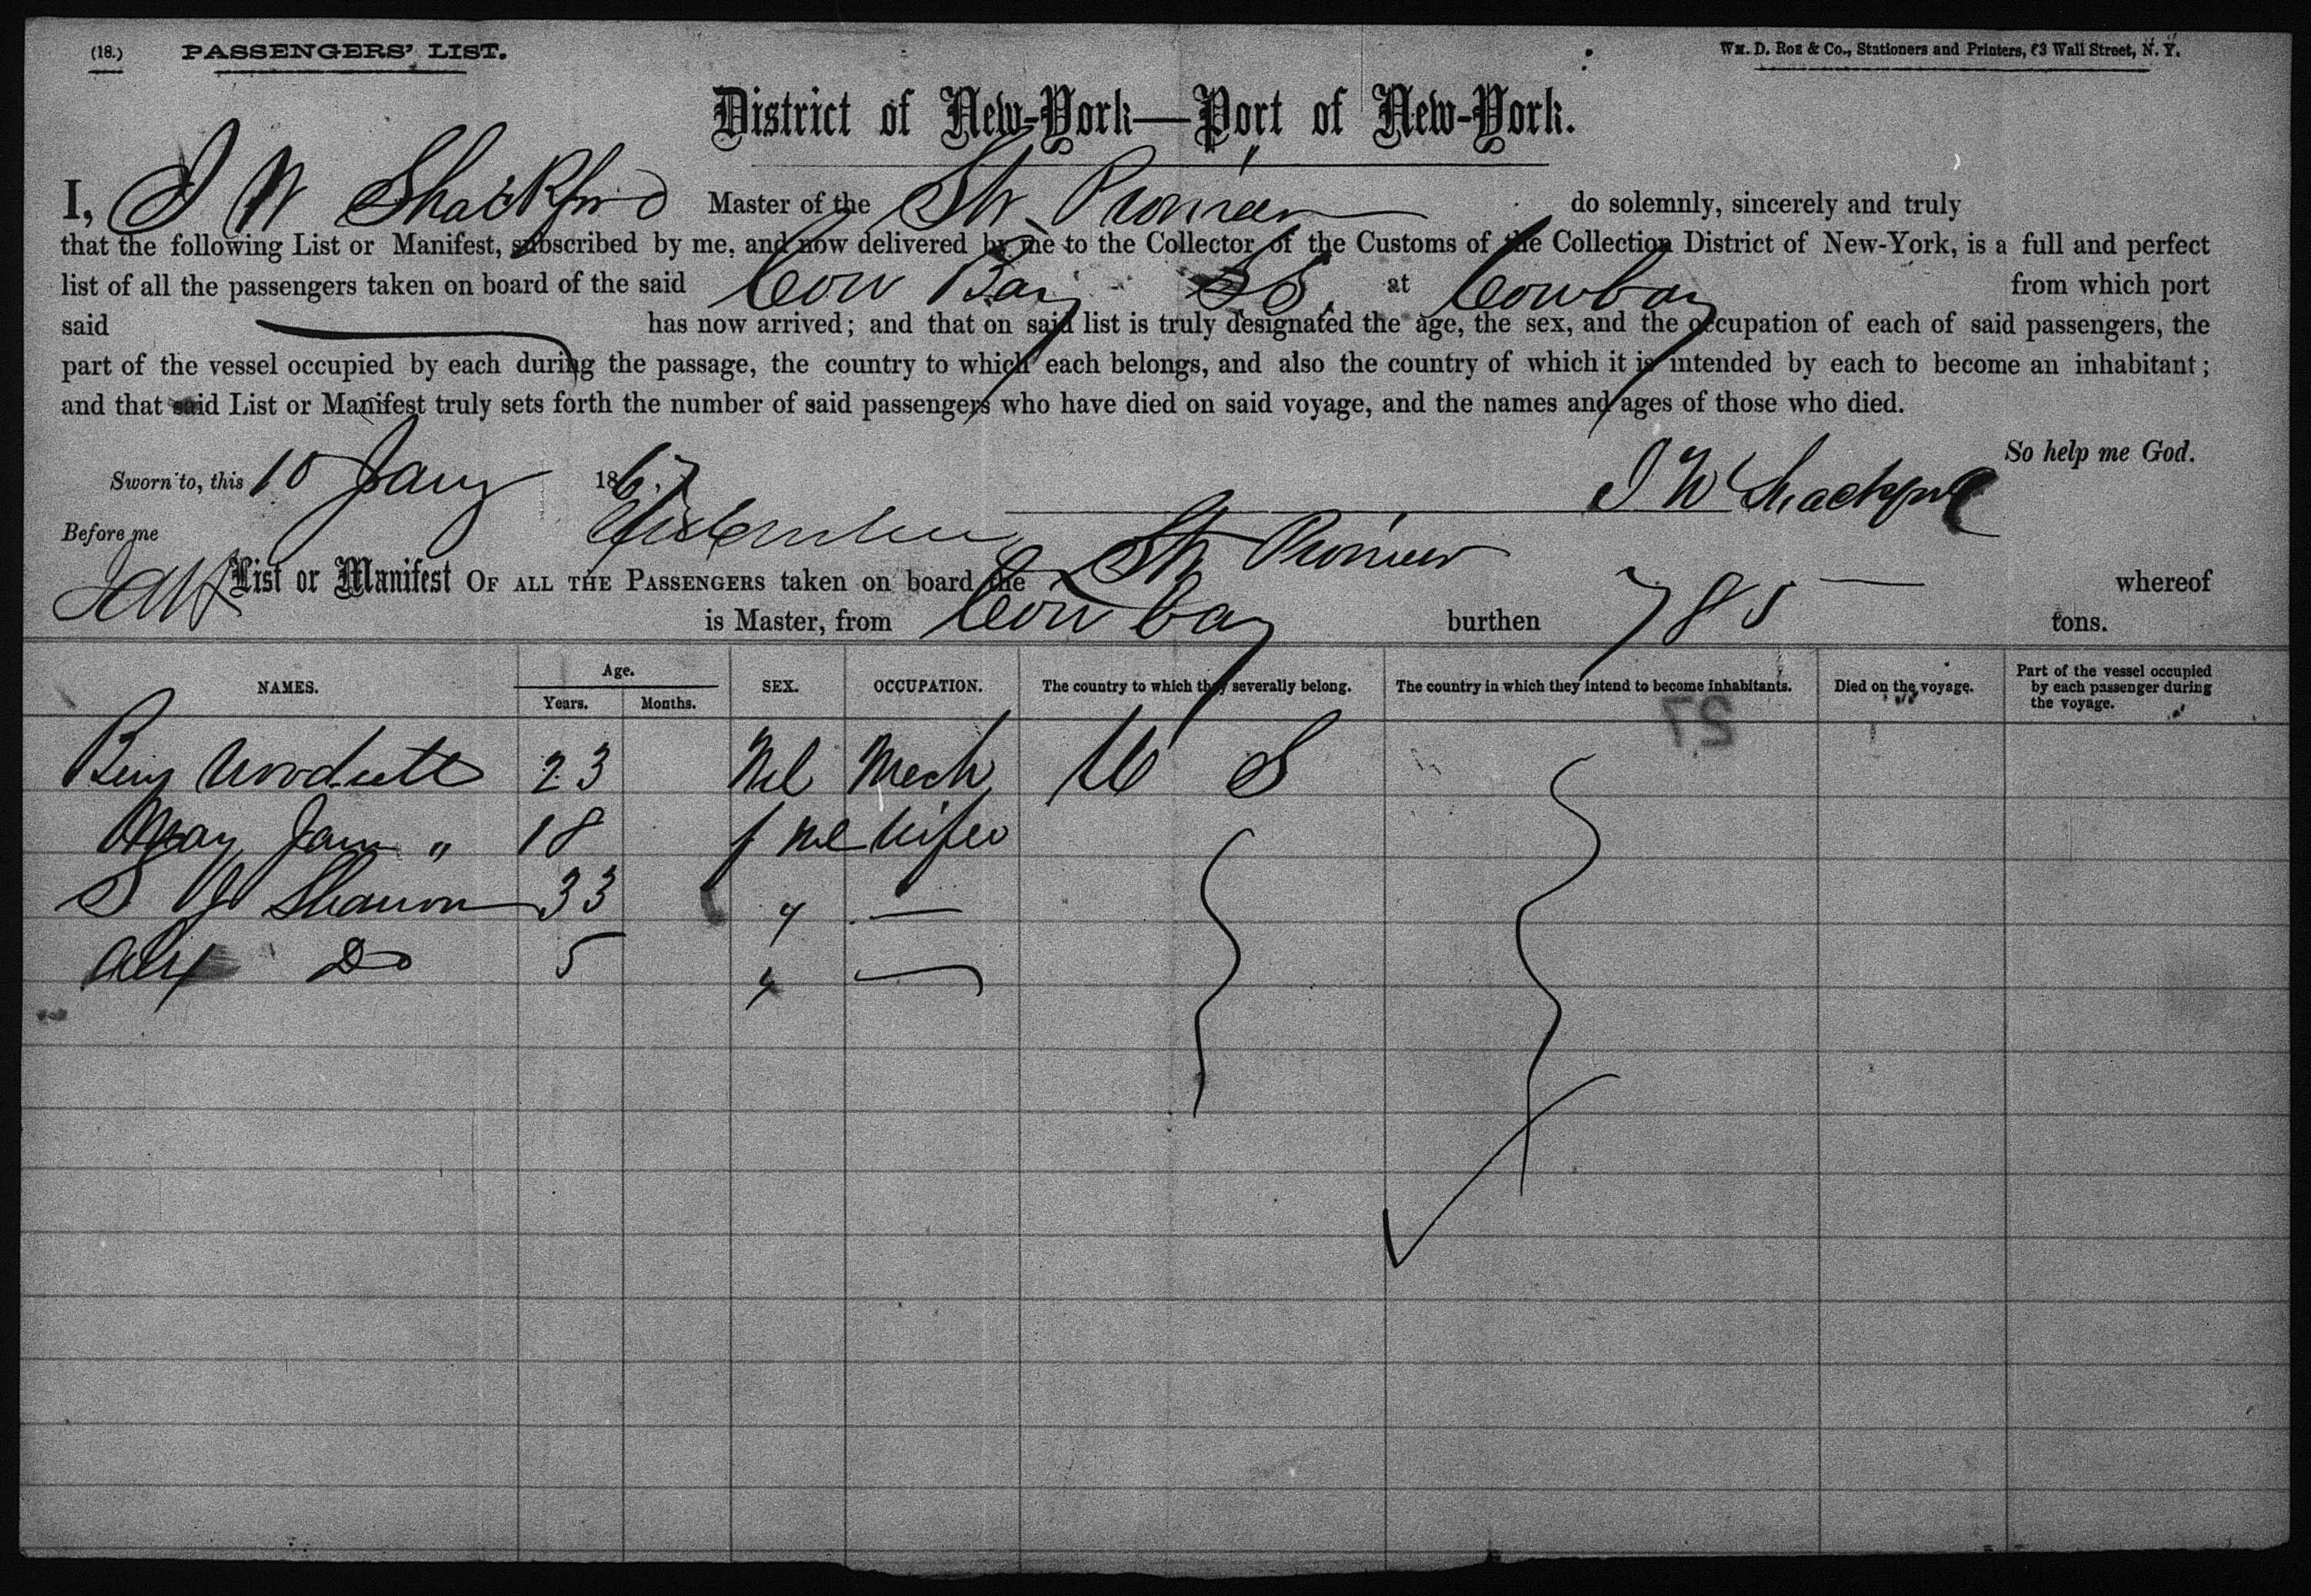 (18.) PASSENGERS' LIST. Wm. D. Roe & Co., Stationers and Printers, 63 Wall Street, N. Y.
District of New-York—Port of New-York.
I, J W Shackford Master of the Str Pioneer do solemnly, sincerely and truly
that the following List or Manifest, subscribed by me, and now delivered by me to the Collector of the Customs of the Collection District of New-York, is a full and perfect
list of all the passengers taken on board of the said Cow Bay at Cowbay from which port
said has now arrived; and that on said list is truly designated the age, the sex, and the occupation of each of said passengers, the
part of the vessel occupied by each during the passage, the country to which each belongs, and also the country of which it is intended by each to become an inhabitant;
and that said List or Manifest truly sets forth the number of said passengers who have died on said voyage, and the names and ages of those who died.
So help me God.
Sworn to, this 10 Jany 1867 J W Shackford
Before me
List or Manifest OF ALL THE PASSENGERS taken on board the Str Pioneer whereof
is Master, from Cow bay burthen 785 tons.
NAMES. Age. Years. Months. SEX. OCCUPATION. The country to which they severally belong. The country in which they intend to become inhabitants. Died on the voyage. Part of the vessel occupied by each passenger during the voyage.
27
Benj 23 Ml Mech U S
Mary Jane " 18 f ml Wife
S J 33 "
Alex Do 5 "